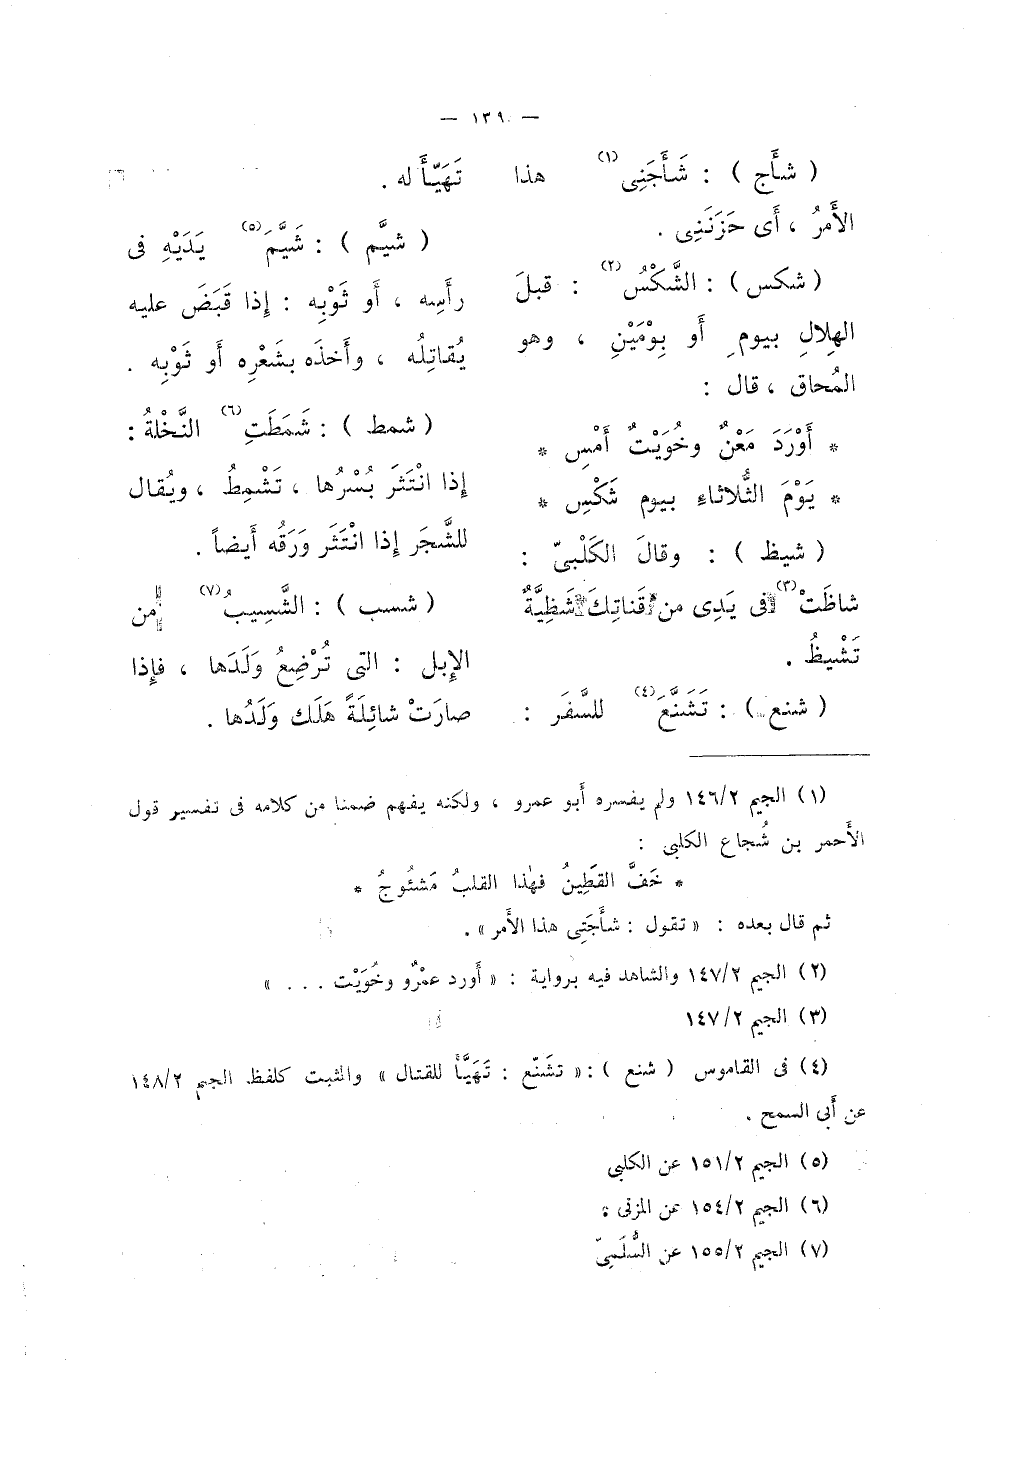 — ١٣٩ —
( شأج ) : شَأَجَنِى (١) هذا
الأَمرُ ، أَى حَزَنَنِى .
( شكس ) : الشَّكْسُ (٢) : قبلَ
الهِلالِ بيومِ أَو يِوْمَيْنِ ، وهو
المُحاق ، قال :
* أَوْرَدَ مَعْنٌ وخُوَيْتٌ أَمْسِ *
* يَوْمَ الثُّلاثاءِ بيوم شَكْسِ *
( شيظ ) : وقالَ الكَلْبىّ :
شاظَتْ (٣) فى يَدِى من قَناتِكَ شَظِيَّةٌ
تَشْيظُ .
( شنع ) : تَشَنَّعَ (٤) للسَّفَر :
تَهَيّأَ له .
( شيَّم ) : شَيَّمَ (٥) يَدَيْهِ فى
رأَسِه ، أَو ثَوْبِه : إِذا قَبَضَ عليه
يُقاتِلُه ، وأَخذَه بشَعْرِه أَو ثَوْبِه .
( شمط ) : شَمَطَتِ (٦) النَّخْلةُ :
إِذا انْتَثَرَ بُسْرُها ، تَشْمِطُ ، ويُقال
للشَّجَر إِذا انْتَثَر وَرَقُه أَيضاً .
( شسب ) : الشَّسِيبُ (٧) من
الإِبل : التى تُرْضِعُ وَلَدَها ، فإِذا
صارَتْ شائِلَةً هَلَك وَلَدُها .
(١) الجيم ١٤٦/٢ ولم يفسره أَبو عمرو ، ولكنه يفهم ضمنا من كلامه فى تفسير قول
الأَحمر بن شُجاع الكلبى :
* خَفَّ القَطِينُ فهٰذا القلبُ مَشئُوجُ *
ثم قال بعده : « تقول : شأَجَتِى هذا الأَمر » .
(٢) الجيم ١٤٧/٢ والشاهد فيه برواية : « أَورد عمْرٌو وخُوَيْت . . . »
(٣) الجيم ١٤٧/٢
(٤) فى القاموس ( شنع ) : « تشَنّع : تَهَيَّأَ للقتال » والمثبت كلفظ الجيم ١٤٨/٢
عن أَبى السمح .
(٥) الجيم ١٥١/٢ عن الكلبى
(٦) الجيم ١٥٤/٢ عن المزنى ؛
(٧) الجيم ١٥٥/٢ عن السُّلَمِىّ